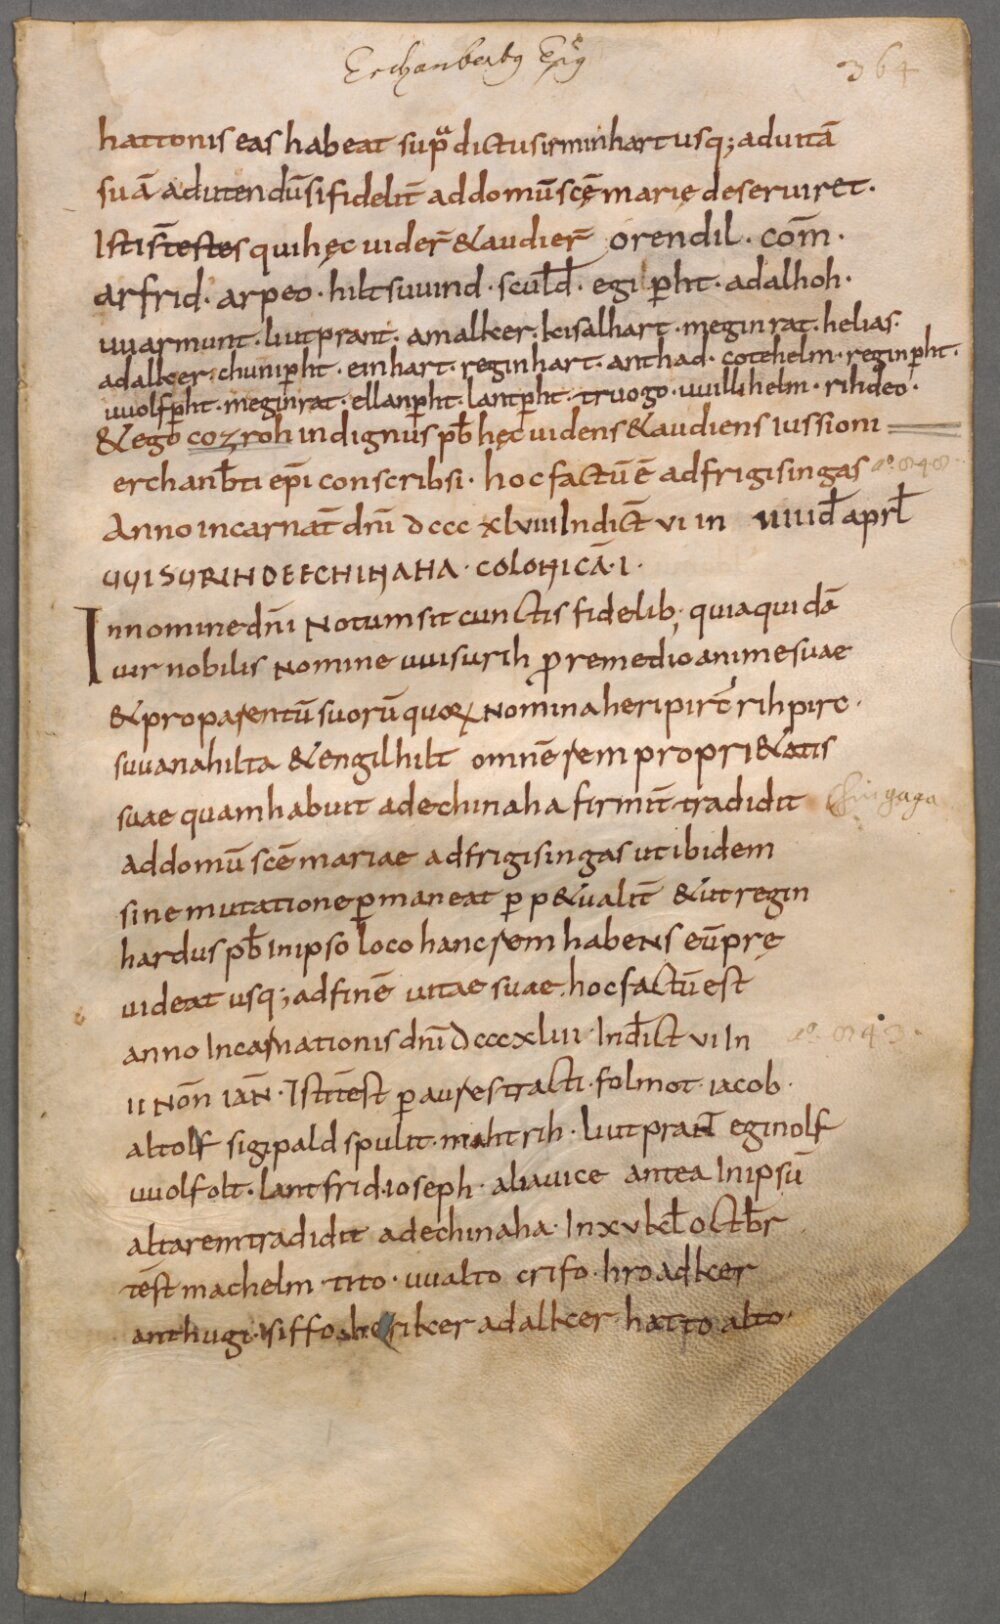 Erchanbertus Eps
364
hattonis eas habeat supͣdictus irminhart usq; ad uitā
suā ad utendū si fidelit̄ ad domū scę̄ marię deseruiret.
Isti s̄ testes qui hęc uider̄ & audier̄ orendil. com̄.
arfrid. arpeo. hiltsuuind. sculd̄. egip̱ht. adalhoh.
uuarmunt. liutprant. amalker. kisalhart. meginrat. helias.
adalker. chunip̱ht. einhart. reginhart. anthad. cotehelm. reginp̱ht.
uuolfp̱ht. meginrat. ellanp̱ht. lantp̱ht. truogo. uuillihelm. rihdeo.
& ego cozroh indignus pb̄ hęc uidens & audiens iussioni
erchanb̄ti ep̄i conscribsi. hoc factū ē ad frigisingas
aº. 848
Anno incarnat̄ dn̄i dccc xlviii Indict̄ vi in uiid̄ aprl̄
UUISURIH DE ECHINAHA. COLONICĀ. I.
In nomine dn̄i Notum sit cunctis fidelib; quia quidā
uir nobilis Nomine uuisurih p̱ remedio anime suae
& pro parentū suorū quoꝝ Nomina heripirc̄ rihpirc.
suuanahilta & engilhilt omnē rem propri&atis
suae quam habuit ad echinaha firmit̄ tradidit
Chingaga
ad domū scē mariae ad frigisingas ut ibidem
sine mutatione p̱maneat p̱p&ualit̄ & ut regin
hardus pb̄ In ipso loco hanc rem habeNs eū prę
uideat usq; ad finē uitae suae. hoc factū est
anno Incarnationis dn̄i Dcccxliii Indict̄ vi In
aº. 843.
ii Nōn IāN. Isti tēst p̱ aures tracti. folmot. iacob.
altolf sigipald spulit. mahtrih. liutpraNT eginolf
uuolfolt. lantfrid. ioseph. alia uice antea In ipsū
altarem tradidit ad echinaha. In xv kl̄ octb̄r
tēst machelm. tito. uualto crifo. hroadker
anthugi. siffo. heriker adalker. hatto alto.